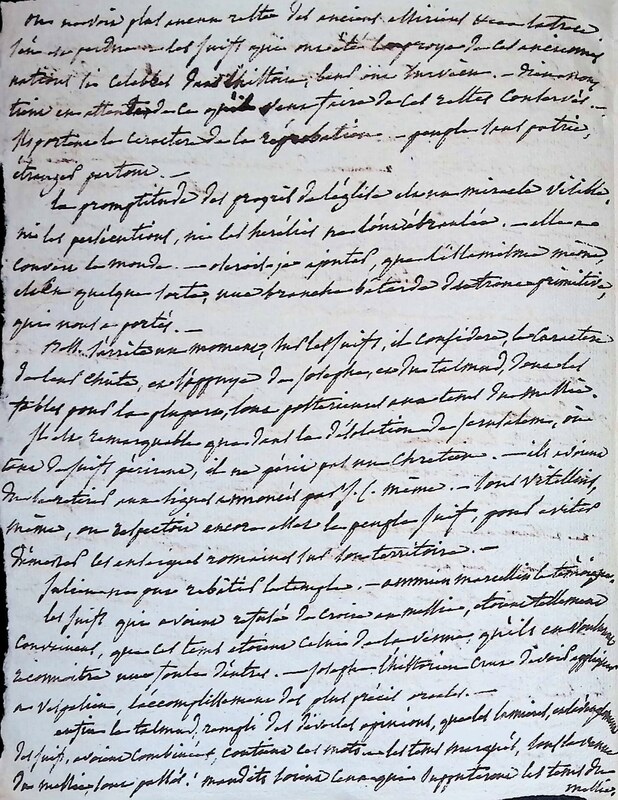 on ne voit plus aucun reste des anciens assiriens la trace
s'en est perdue les juifs qui ont été la proye de ces anciennes
nations si celebres dans l'histoire, leur ont survécu. - dieu nous
tient en attente de ce qu'il veut faire de ces restes conservés. -
ils portent le caractere de la réprobation - peuple sans patrie,
étranger partout. -
la promptitude des progrès de l'église est un miracle visible.
ni les persécutions, ni les herésies ne l'ont ébranlée. - elle a
converti le monde. - oserois-je ajouter, que l'islamisme même
est en quelque sorte, une branche batarde du tronc primitive,
qui nous a portés. -
s'arrete un moment, sur les juifs, il considere, le caractere
de leur chute, en s'appuyant de josephe, et du talmud, dont les
fables pour la plupart, sont posterieures aux tems du messie.
il est remarquable que dans la désolation de jerusalem, où
tant de juifs périrent, il ne périt pas un chretien. - ils avoient
aux signes annoncés par J. C. même. - sous vitellius,
même, on respectoit encore assez le peuple juif, pour éviter
de montrer les enseignes romaines sur son territoire. -
julien ne put rebâtir le temple. - ammien marcellin le témoigne.
les juifs qui avoient refusé de croire au messie, étoient tellement
convaincus, que ces tems etoient celui de la venue, qu'ils en voulurent
reconnoitre une foule d'autres. - josephe l'historien crut devoir appliquer
a vespasien, l'accomplissement des plus precis oracles. -
enfin le talmud, rempli des diverses opinions, que les lumieres, et l'aveuglement
des juifs, avoient combinées, contient ces mots - les tems marqués, pour la venue
du messie, sont passés: maudits soient ceux qui supputeront les tems du
messie.